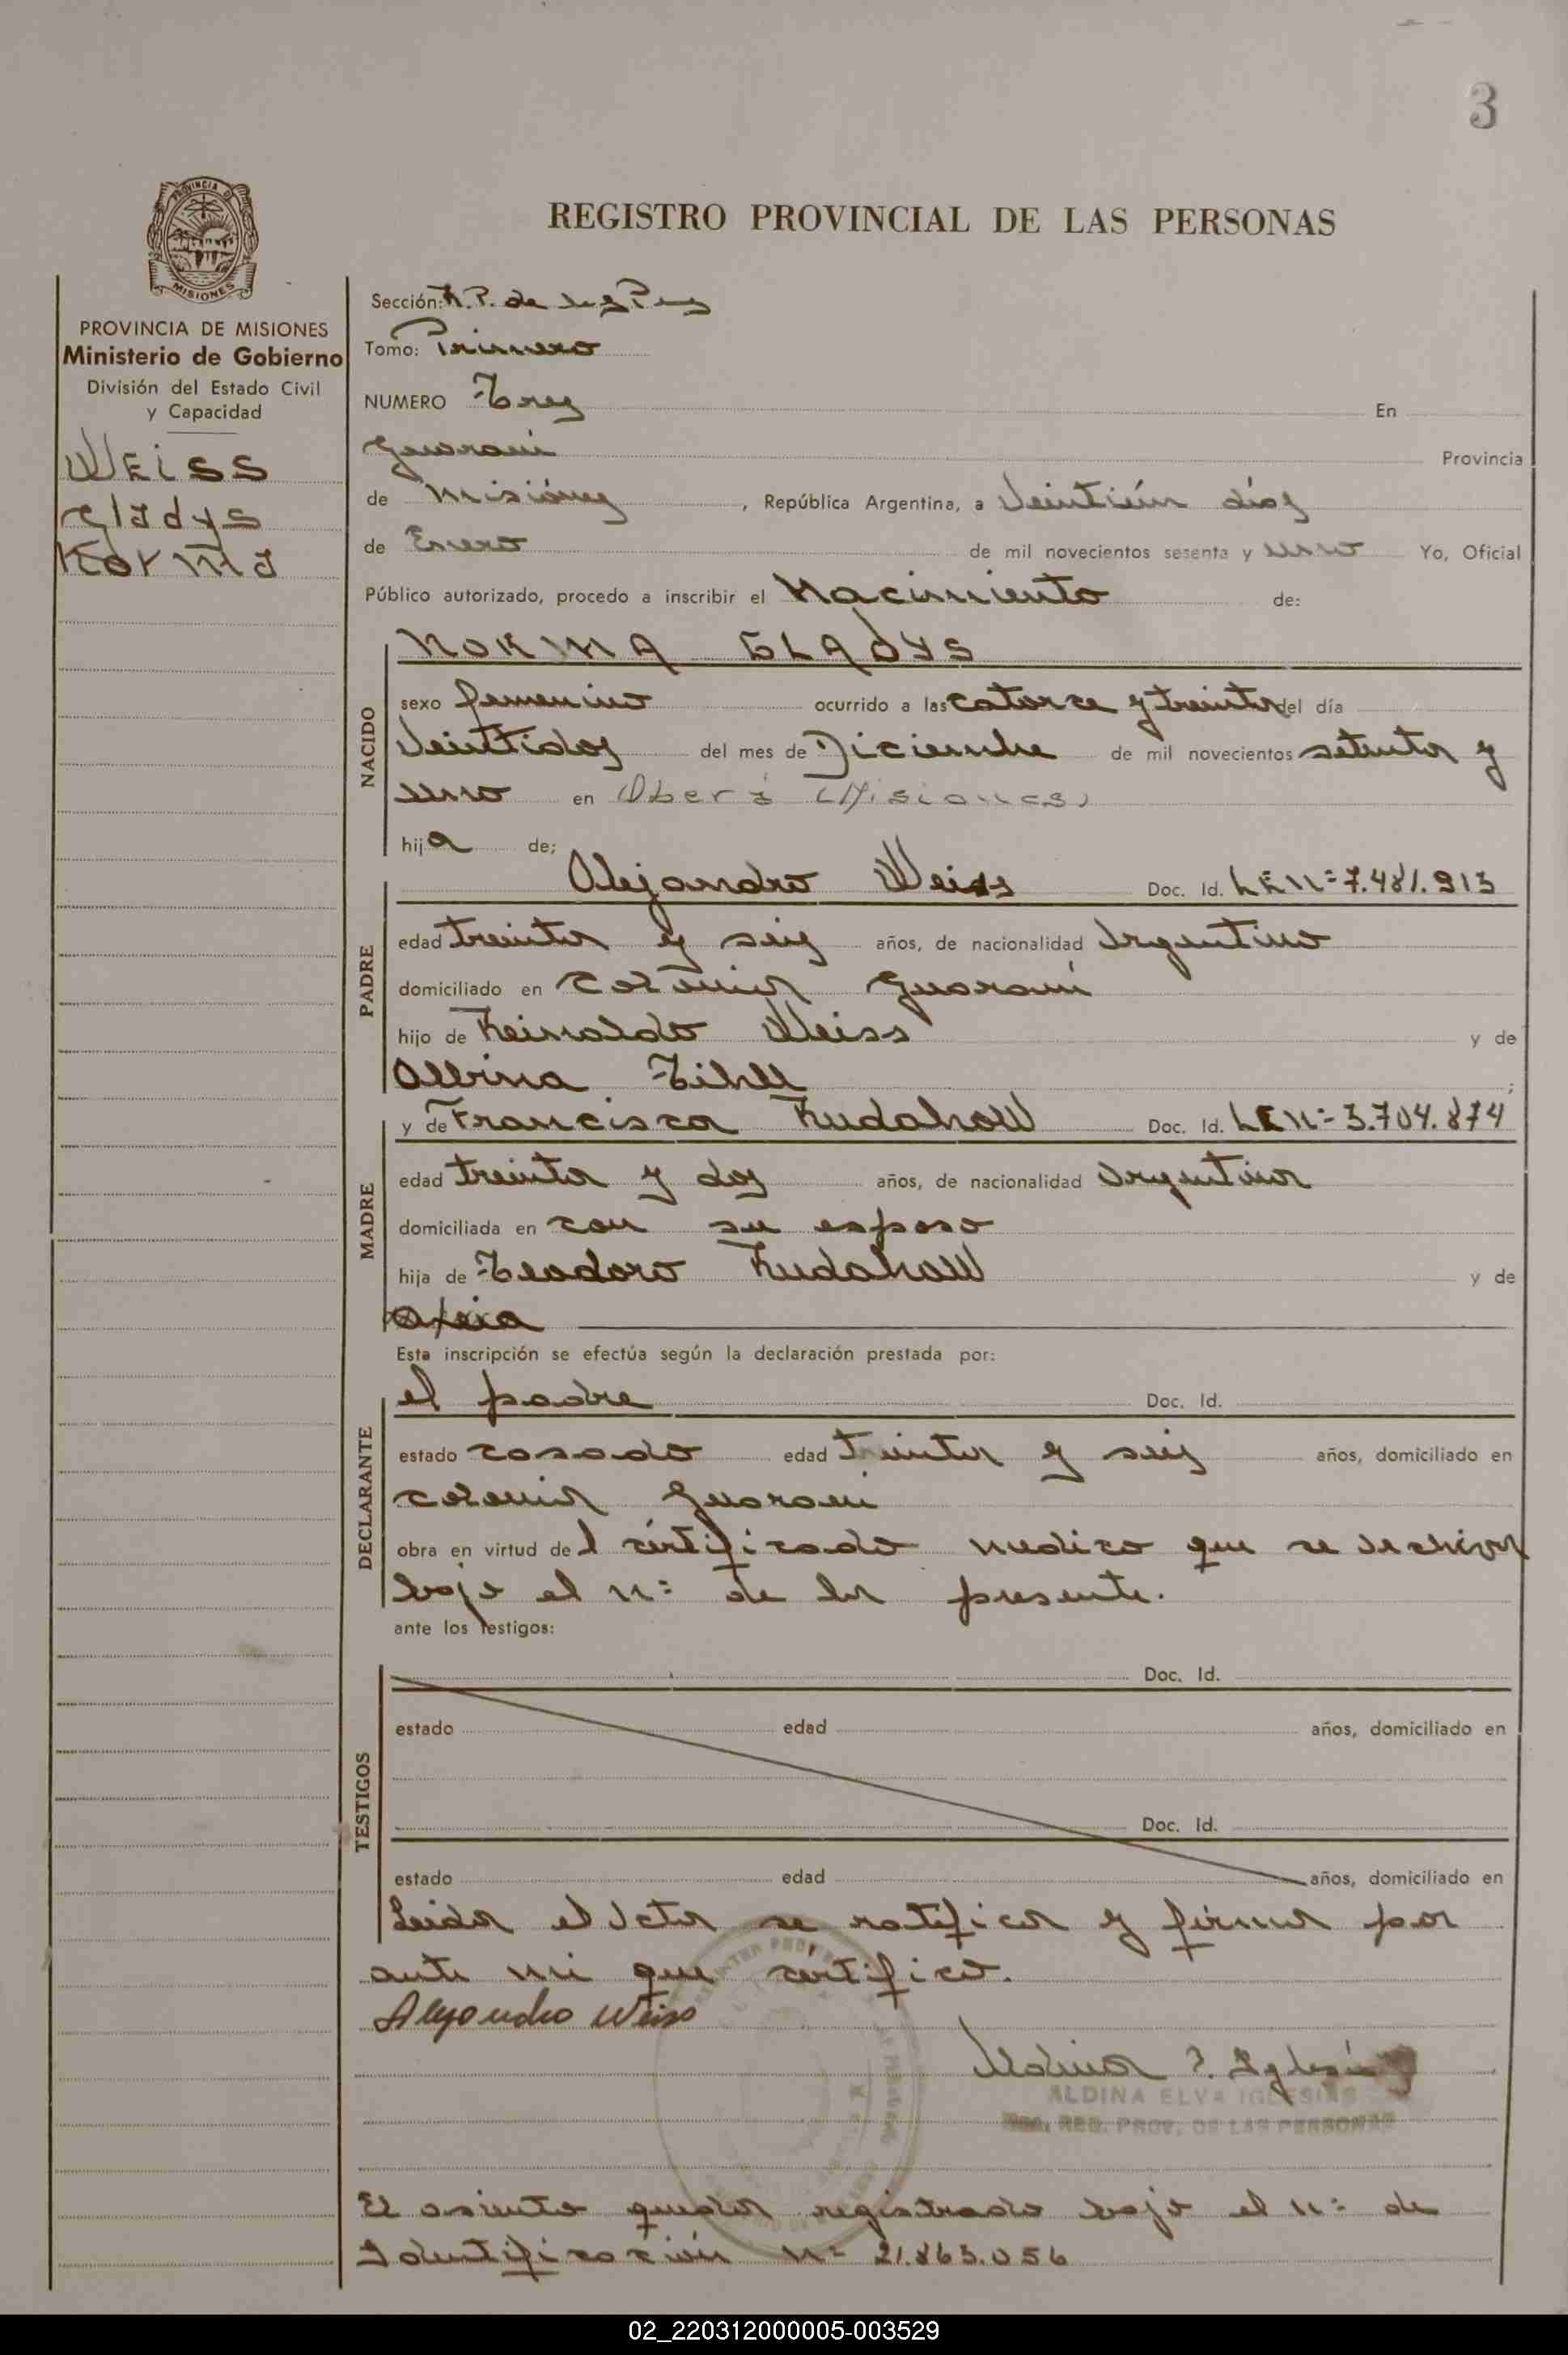 3
REGISTRO PROVINCIAL DE LAS PERSONAS
PROVINCIA DE MISIONES
Ministerio de Gobierno
División del Estado Civil
y Capacidad
Weiss
Gladys
Norma
Sección: R.P. de las Pers
Tomo: Primero
NUMERO Tres En
Guaraní Provincia
de Misiónes, República Argentina, a Veintiún días
de Enero de mil novecientos sesenta y uno Yo, Oficial
Público autorizado, procedo a inscribir el Nacimiento de:
NACIDO
NORMA GLADYS
sexo femenino ocurrido a las catorce y treinta del día
Veintidos del mes de Diciembre de mil novecientos setenta y
uno en Oberá (Misiones)
hija de;
PADRE
Alejandro Weiss Doc. Id. LE Nº 7.481.913
edad treinta y seis años, de nacionalidad Argentino
domiciliado en Colonia Guaraní
hijo de Reinaldo Weiss y de
Albina
MADRE
y de Francisca Doc. Id. LE Nº 3.704.874
edad treinta y dos años, de nacionalidad Argentina
domiciliada en con su esposo
hija de Teodoro y de
Esta inscripción se efectúa según la declaración prestada por:
DECLARANTE
el padre Doc. Id.
estado casado edad treinta y seis años, domiciliado en
colonia Guaraní
obra en virtud del certificado medico que se archiva
bajo el nº de la presente.
ante los testigos:
TESTIGOS
Doc. Id.
estado edad años, domiciliado en
Doc. Id.
estado edad años, domiciliado en
Leida el Acta se ratifica y firma por
ante mi que certifico.
Alejandro Weiss
ALDINA ELVA IGLESIAS
REG. PROV. DE LAS PERSONAS
El asiento queda registrado bajo el nº de
Identificación nº 21.863.056
02_220312000005-003529